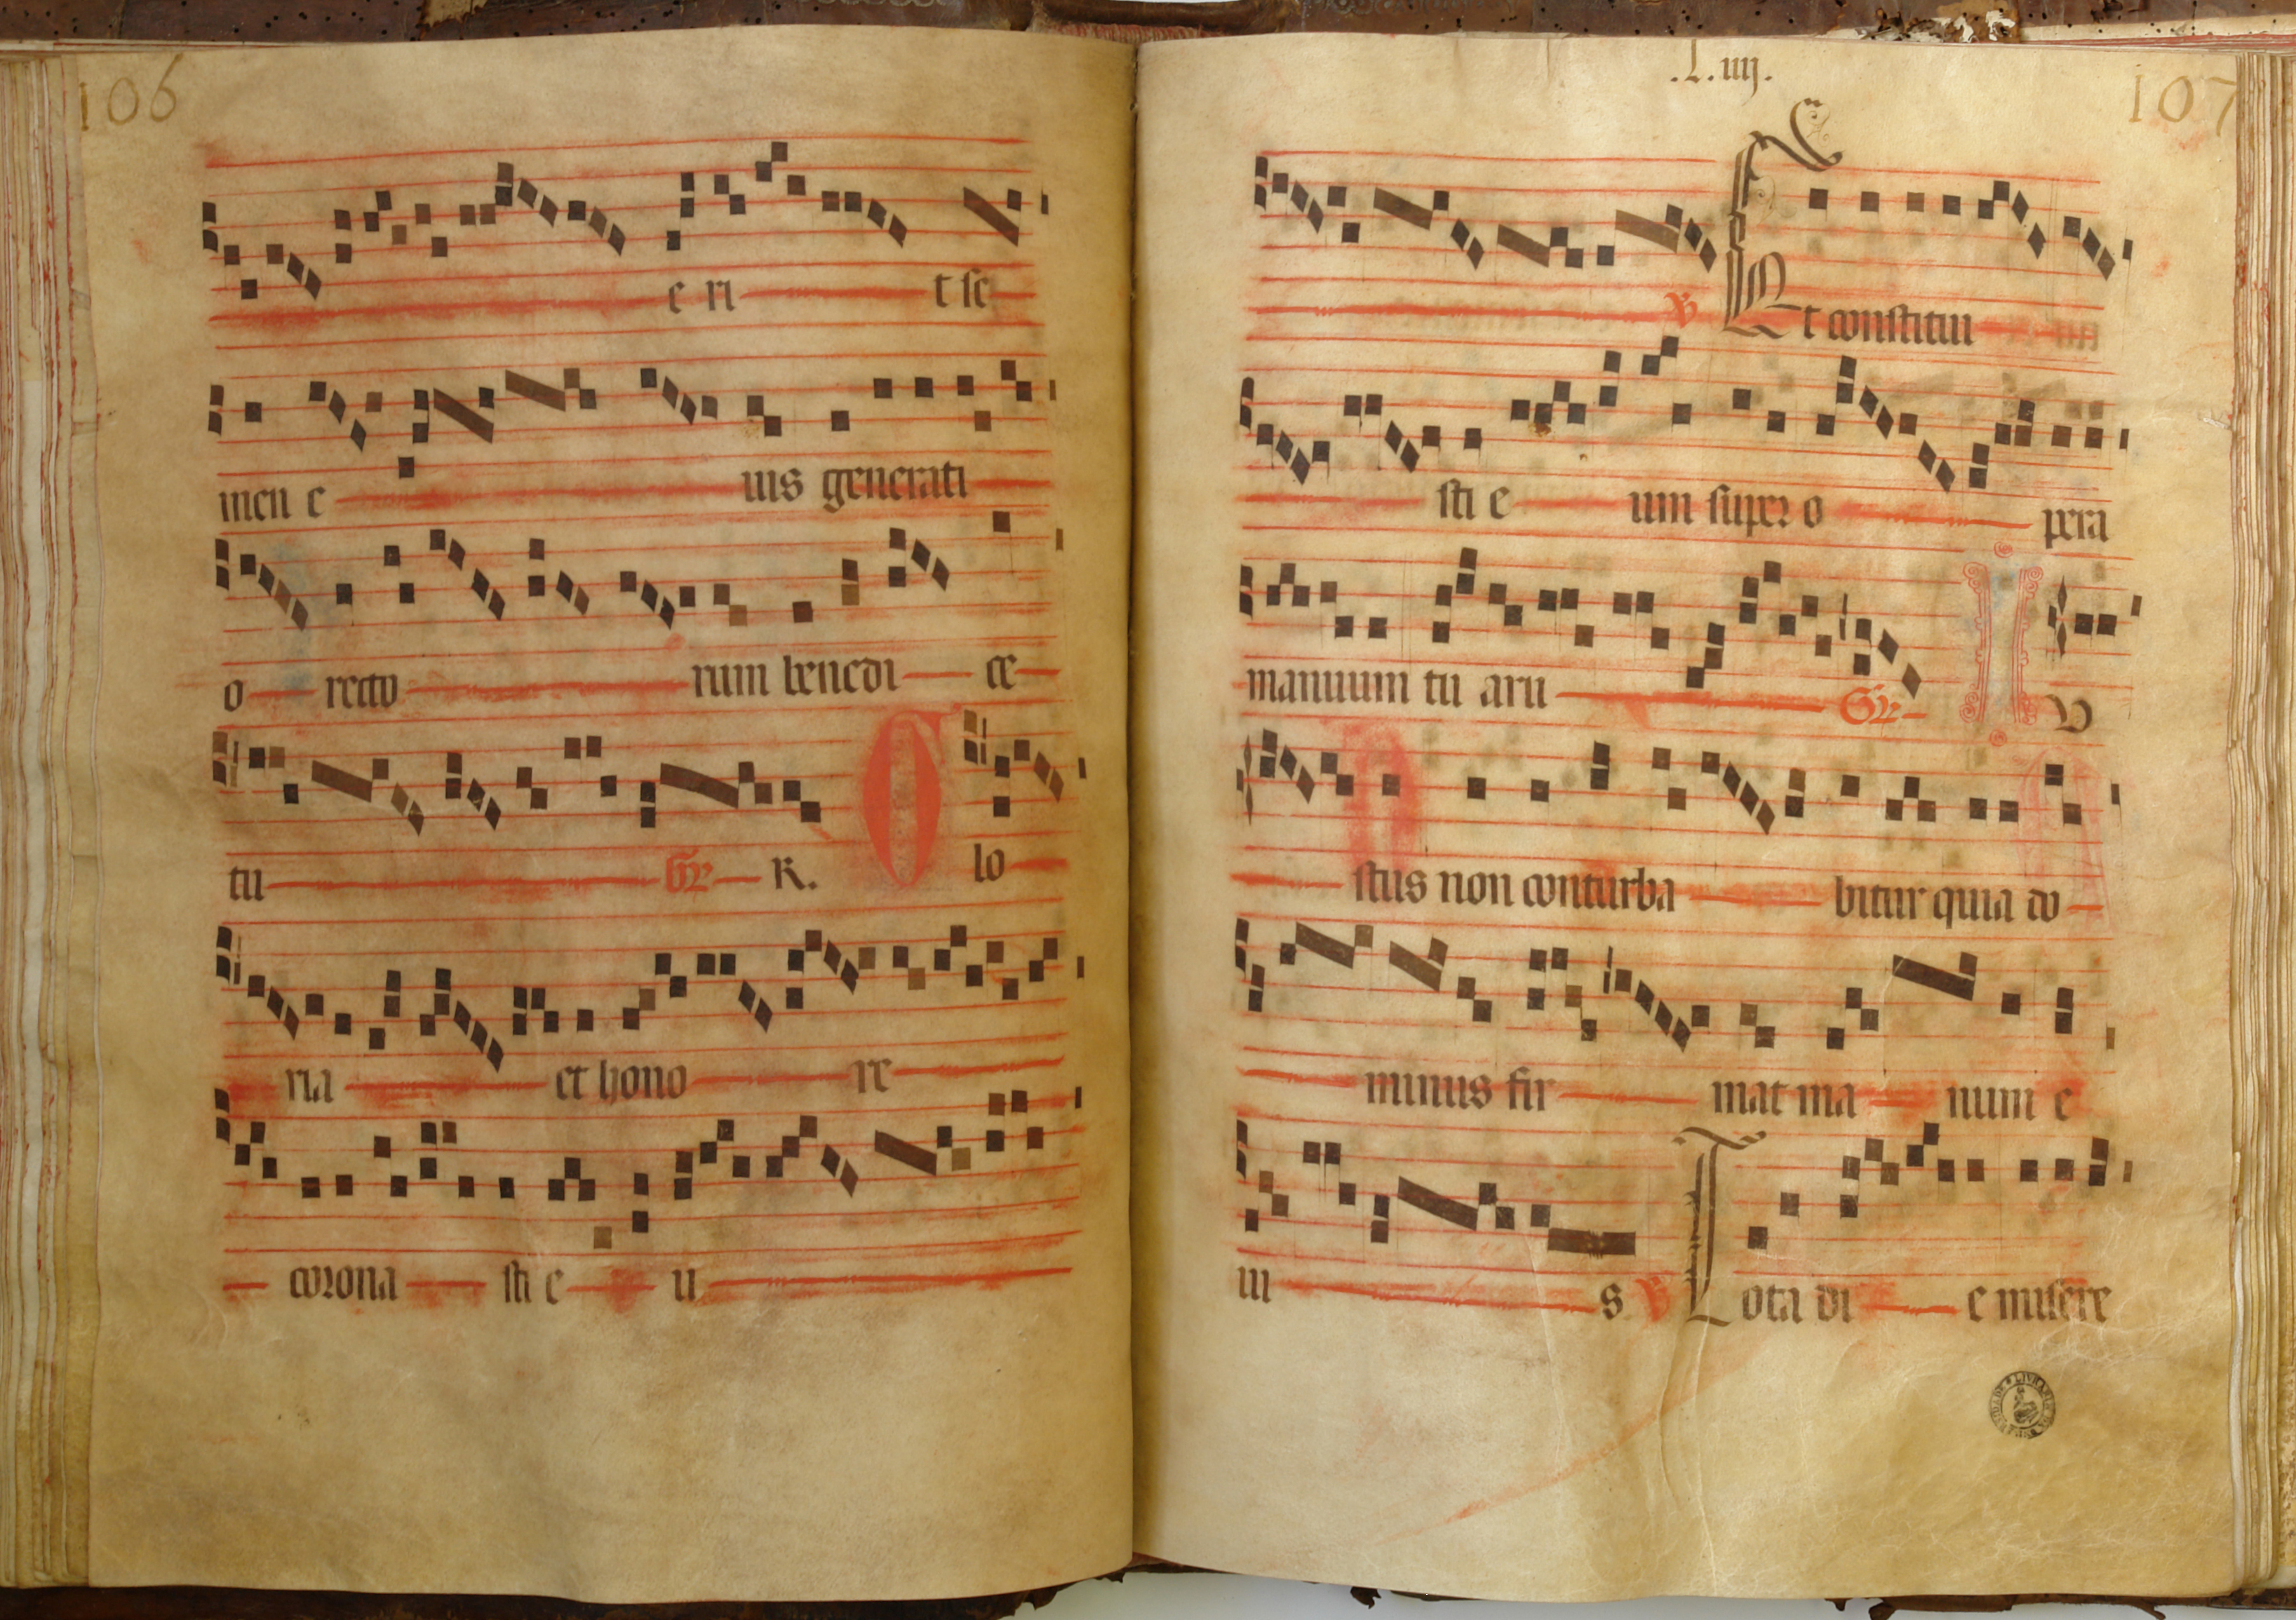 106
e ri t se
men e ius generati
o recto rum benedi ce
tu Gr R. G lo
ria et hono re
corona sti e u
.L.iiij.
107
V Et constitui
sti e um super o pera
manuum tu aru Gr I v
stus non conturba bitur quia do
minus fir mat ma num e
iu s V Tota di e misere